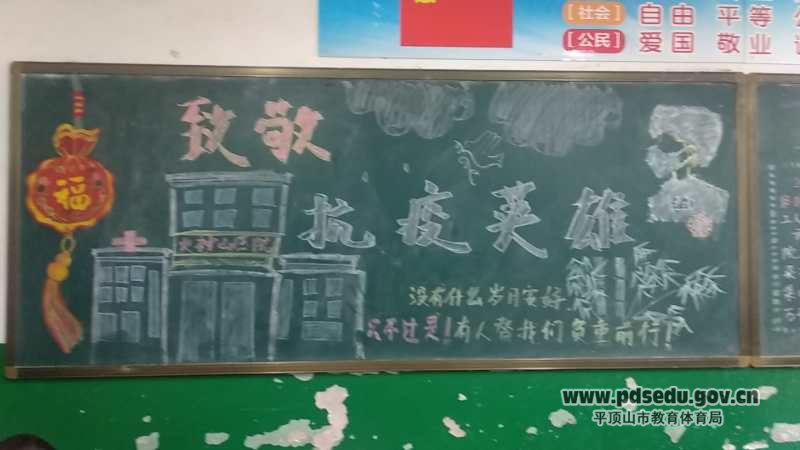 [社会] 自由 平等
[公民] 爱国 敬业
致敬
抗疫英雄
福
火神山医院
没有什么岁月安好
只不过是！有人替我们负重前行！
www.pdsedu.gov.cn
平顶山市教育体育局